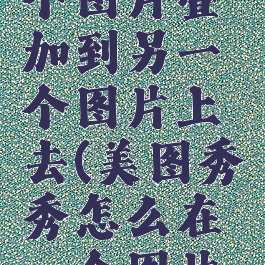 个图片叠
加到另一
个图片上
去(美图秀
秀怎么在
一个图片